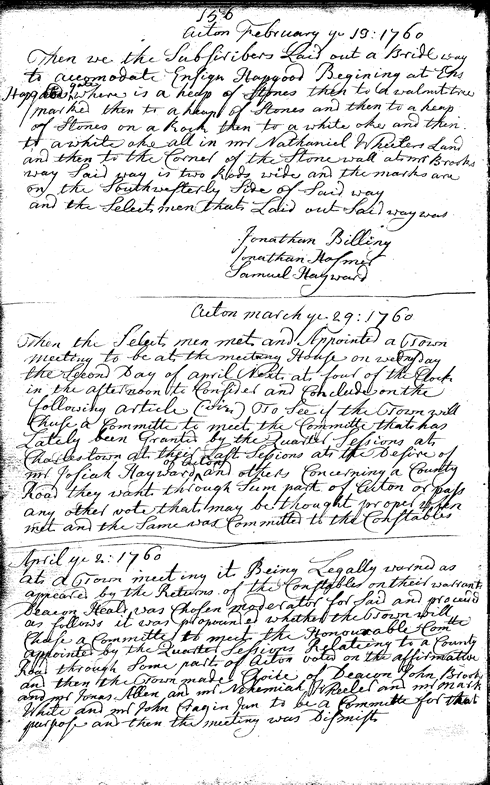 156
Acton February ye 19: 1760
Then we the Subscribers Laid out a Bridl way
to accomodate Ensign Hapgood Begining at Ens
Hapgoods gate where is a heap of Stones then to a walnut tree
marked then to a heap of Stones and then to a heap
of Stones on a Rock then to a white oke and then
to a white oke all in mr Nathaniel Wheelers Land
and then to the Corner of the Stone wall at mr Brooks
way Said way is two Rods wide and the marks are
on the Southwesterly Side of Said way
and the Selectmen that Laid out Said way was
Jonathan Billing
Jonathan Hosmer
Samuel Hayward
Acton march ye 29: 1760
Then the Select men met and Appointed a Town
meeting to be at the meeting House on wednsday
the Second Day of april Next at four of the Clock
in the afternoon to Consider and Conclude on the
following article (viz) To See if the Town will
Chuse a Committe to meet the Committe that has
Lately been Granted by the Quarter Sessions at
Charlestown at their Last Sesions at the Desire of
mr Josiah Hayward of acton and others Concerning a County
Road they want through Sum part of Acton or pass
any other vote that may be thought proper when
met and the Same was Committed to the Constables
April ye 2: 1760
at a Town meeting it Being Legally warned as
appeared by the Returns of the Constables on their warrants
Deacon Heald was Chosen moderator for Said and proceed
as follows it was propounded whether the Town will
Chuse a Committe to meet the Honourable Comtte
appointed by the Quarter Sessions Relating to a County
Road through Some part of Acton voted on the affirmative
and then the Town made Choise of Deacon John Brooks
and mr Jonas Allen and mr Nehemiah Wheeler and mr mark
White and mr John Cragin Jun to be a Committe for that
purpose and then the meeting was Dismist